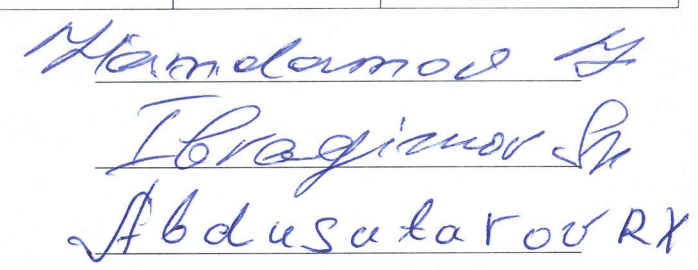 Hamdamov H
Ibragimov Sh
Abdusatarov RX